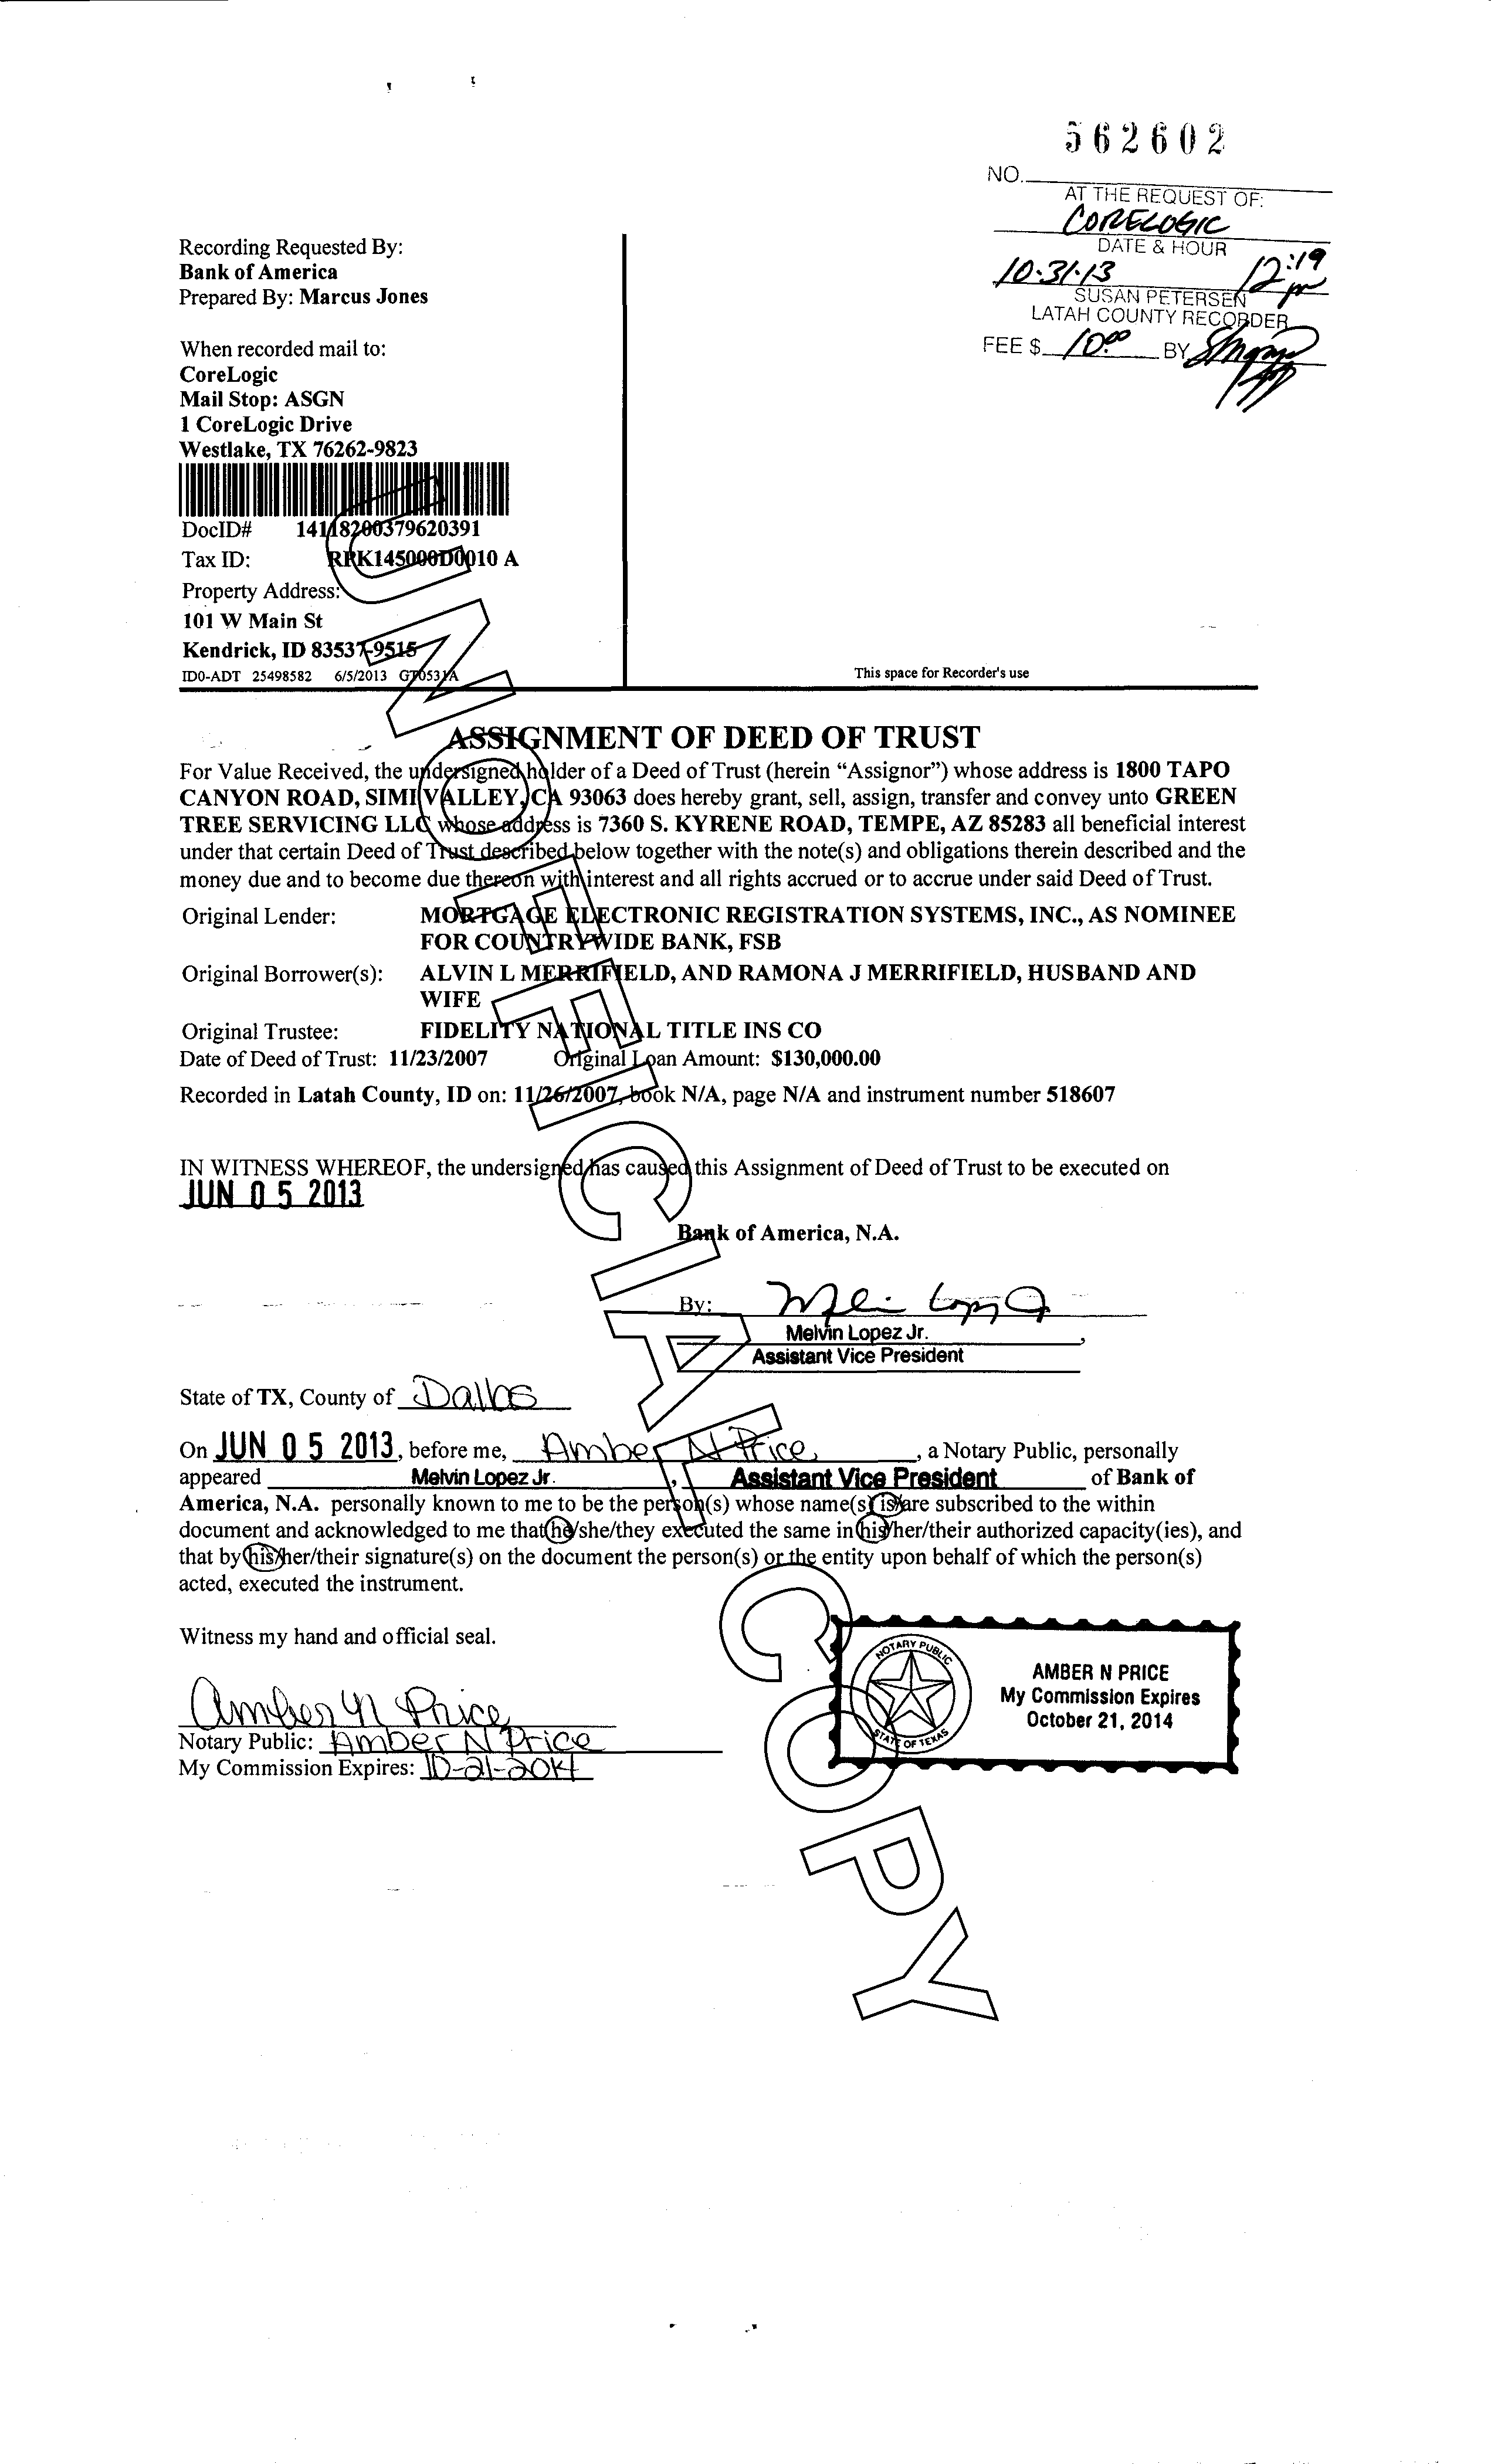 562602
NO.
AT THE REQUEST OF:
CORELOGIC
DATE & HOUR
10·31·13 12:19 pm
SUSAN PETERSEN
LATAH COUNTY RECORDER
FEE $ 10.00 BY
Recording Requested By:
Bank of America
Prepared By: Marcus Jones
When recorded mail to:
CoreLogic
Mail Stop: ASGN
1 CoreLogic Drive
Westlake, TX 76262-9823
DocID# 14118200379620391
Tax ID: RPK145000D0010 A
Property Address:
101 W Main St
Kendrick, ID 83537-9515
ID0-ADT 25498582 6/5/2013 GT0531A
This space for Recorder's use
ASSIGNMENT OF DEED OF TRUST
For Value Received, the undersigned holder of a Deed of Trust (herein “Assignor”) whose address is 1800 TAPO
CANYON ROAD, SIMI VALLEY, CA 93063 does hereby grant, sell, assign, transfer and convey unto GREEN
TREE SERVICING LLC whose address is 7360 S. KYRENE ROAD, TEMPE, AZ 85283 all beneficial interest
under that certain Deed of Trust described below together with the note(s) and obligations therein described and the
money due and to become due thereon with interest and all rights accrued or to accrue under said Deed of Trust.
Original Lender: MORTGAGE ELECTRONIC REGISTRATION SYSTEMS, INC., AS NOMINEE
FOR COUNTRYWIDE BANK, FSB
Original Borrower(s): ALVIN L MERRIFIELD, AND RAMONA J MERRIFIELD, HUSBAND AND
WIFE
Original Trustee: FIDELITY NATIONAL TITLE INS CO
Date of Deed of Trust: 11/23/2007 Original Loan Amount: $130,000.00
Recorded in Latah County, ID on: 11/26/2007, book N/A, page N/A and instrument number 518607
IN WITNESS WHEREOF, the undersigned has caused this Assignment of Deed of Trust to be executed on
JUN 05 2013
Bank of America, N.A.
By:
Melvin Lopez Jr.,
Assistant Vice President
State of TX, County of Dallas
On JUN 05 2013, before me, Amber N Price, a Notary Public, personally
appeared Melvin Lopez Jr., Assistant Vice President of Bank of
America, N.A. personally known to me to be the person(s) whose name(s) is/are subscribed to the within
document and acknowledged to me that he/she/they executed the same in his/her/their authorized capacity(ies), and
that by his/her/their signature(s) on the document the person(s) or the entity upon behalf of which the person(s)
acted, executed the instrument.
Witness my hand and official seal.
Amber N Price
Notary Public: Amber N Price
My Commission Expires: 10-21-2014
NOTARY PUBLIC
STATE OF TEXAS
AMBER N PRICE
My Commission Expires
October 21, 2014
UNOFFICIAL COPY